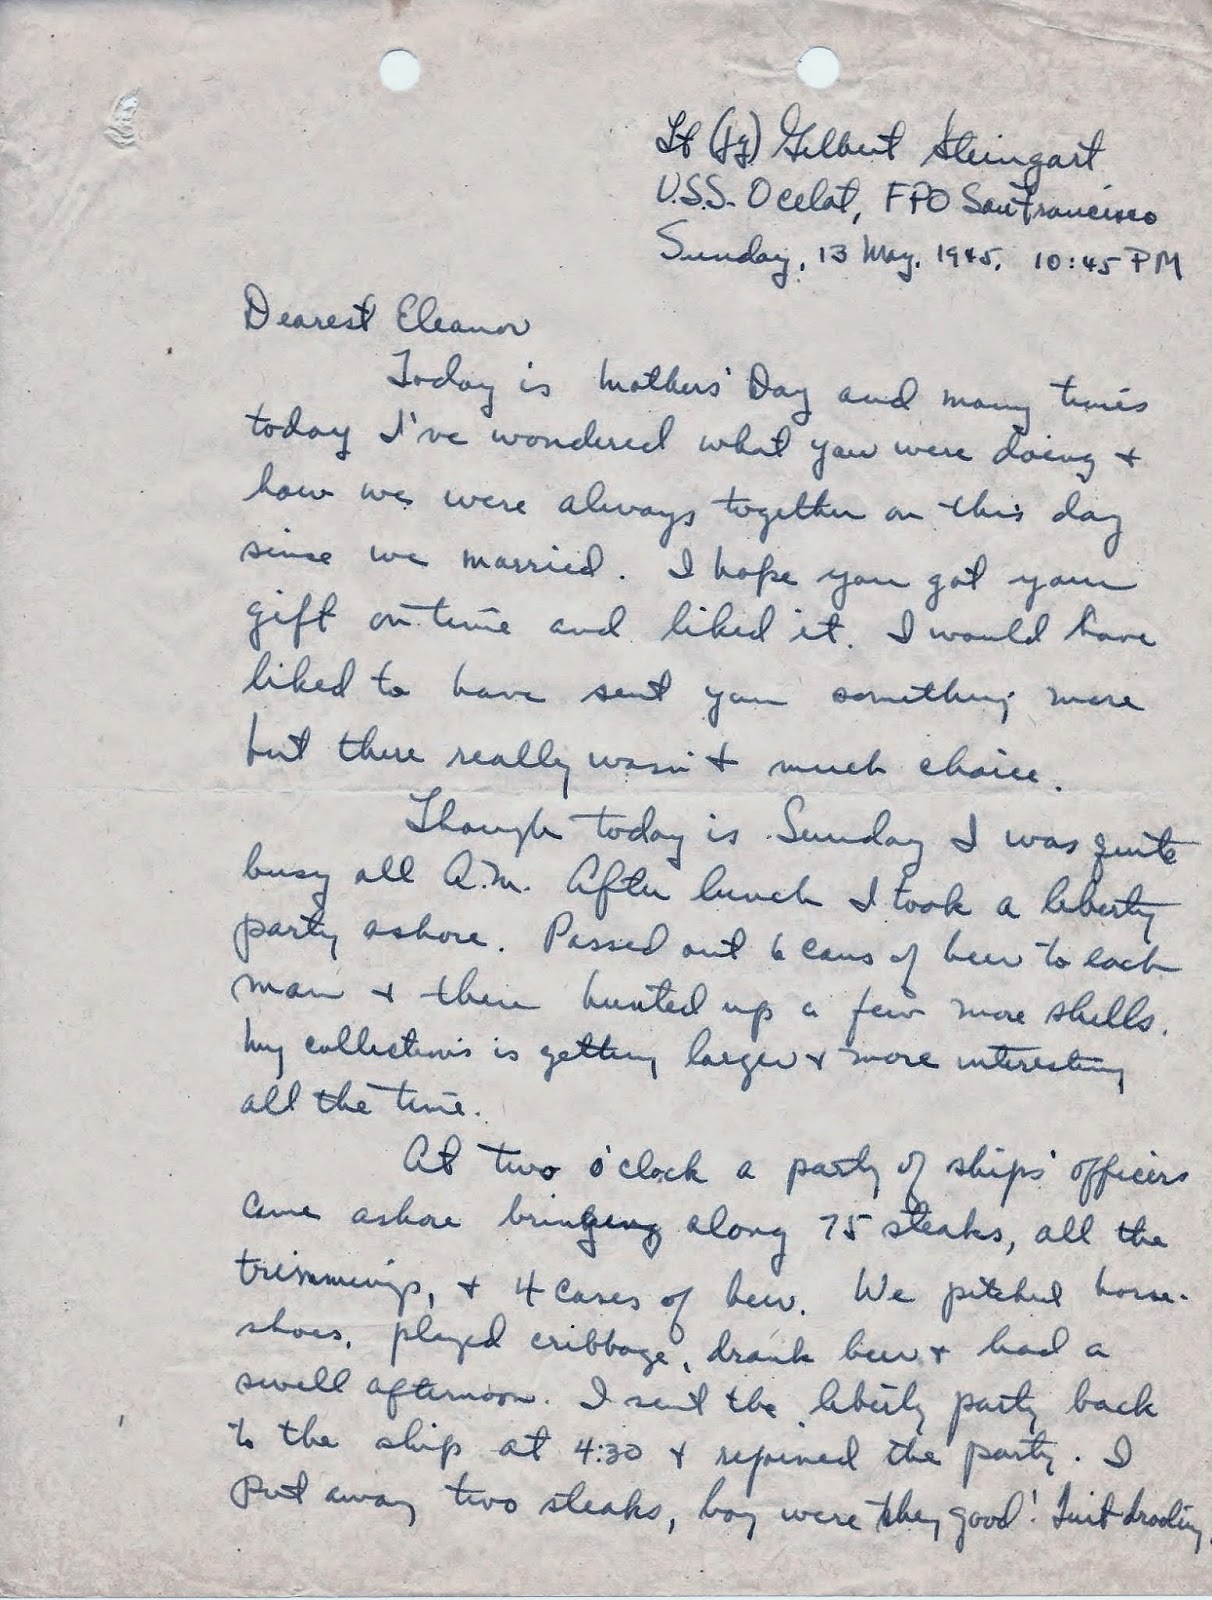 Lt (jg) Gilbert Steingart
U.S.S. Ocelot, FPO San Francisco
Sunday, 13 May, 1945. 10:45 PM
Dearest Eleanor
Today is Mothers' Day and many times
today I've wondered what you were doing &
how we were always together on this day
since we married. I hope you got your
gift on time and liked it. I would have
liked to have sent you something more
but there really wasn't much choice.
Though today is Sunday I was quite
busy all A.M. After lunch I took a liberty
party ashore. Passed out 6 cans of beer to each
man & then hunted up a few more shells.
My collection's is getting larger & more interesting
all the time.
At two o'clock a party of ships' officers
came ashore bringing along 75 steaks, all the
trimmings, & 4 cases of beer. We pitched horse-
shoes, played cribbage, drank beer & had a
swell afternoon. I sent the liberty party back
to the ship at 4:30 & rejoined the party. I
put away two steaks, boy were they good! Just drooling